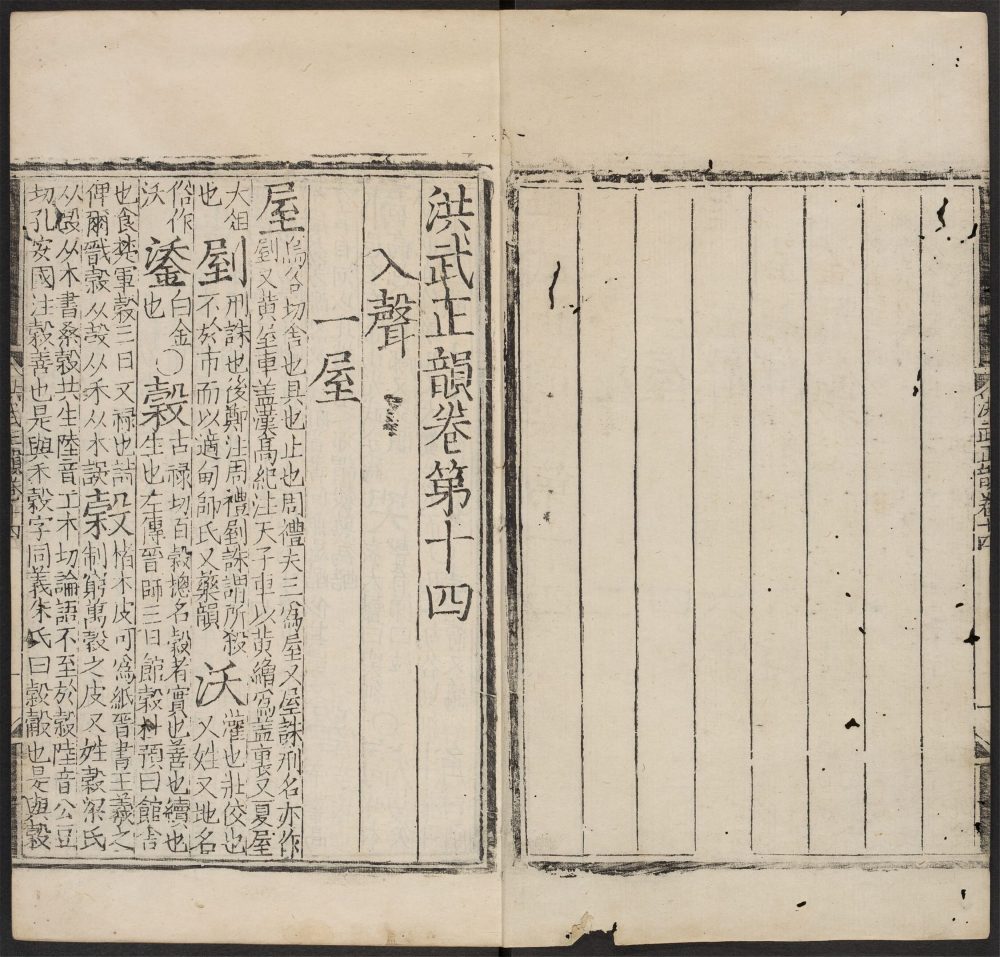 洪武正韻卷十四
洪武正韻卷第十四
入聲
一屋
屋烏谷切舍也具也止也周禮夫三爲屋又屋誅刑名亦作
剭又黃屋車蓋漢高紀注天子車以黃繒爲蓋裏又夏屋
大俎
也
剭刑誅也後鄭注周禮剭誅謂所殺
不於市而以適甸師氏又藥韻
沃灌也壯佼也
又姓又地名
俗作
沃
鋈白金
也
○穀古祿切百穀總名穀者實也善也續也
生也左傳晉師三日館穀杜預曰館舍
也食楚軍穀三日又祿也詩
俾爾戩穀从㱿从禾从木誤
榖楮木皮可爲紙晉書王羲之
制窮萬榖之皮又姓穀梁氏
从㱿从木書桑榖共生陸音工木切論語不至於穀陸音公豆
切孔安國注穀善也是與禾穀字同義朱氏曰穀也是與穀
洪武正韻卷十四